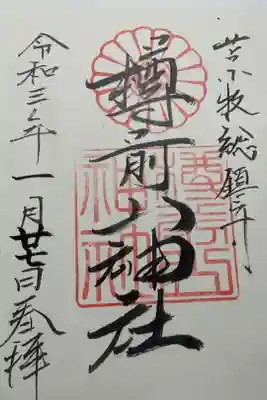 苫小牧総鎮守
樽前山神社
令和三年一月廿七日参拝